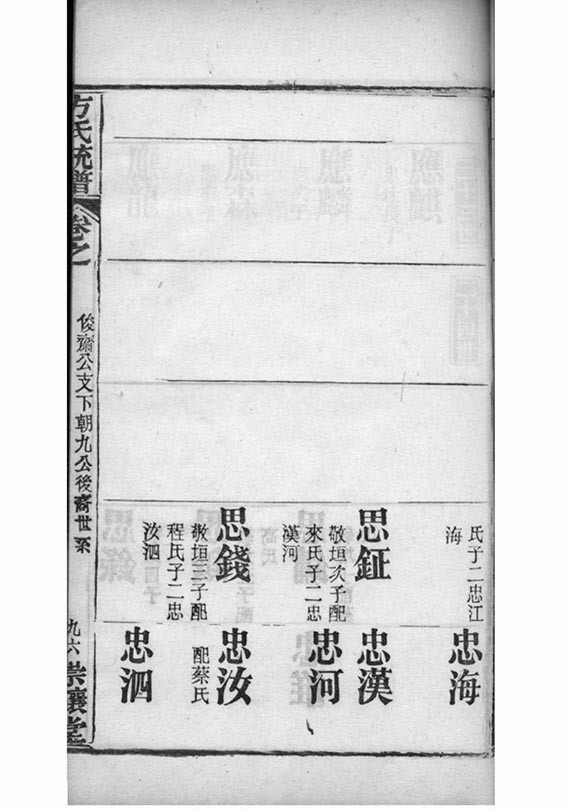 氏子二忠江
海
思鉦
敬垣次子配
來氏子二忠
漢河
思錢
敬垣三子配
程氏子二忠
汝泗
忠海
忠漢
忠河
忠汝
配蔡氏
忠泗
方氏統譜
卷之
俊齋公支下朝九公後裔世系
九六
崇讓堂